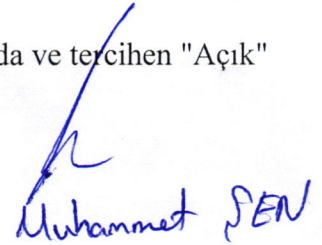 da ve tercihen "Açık"
Muhammet ŞEN